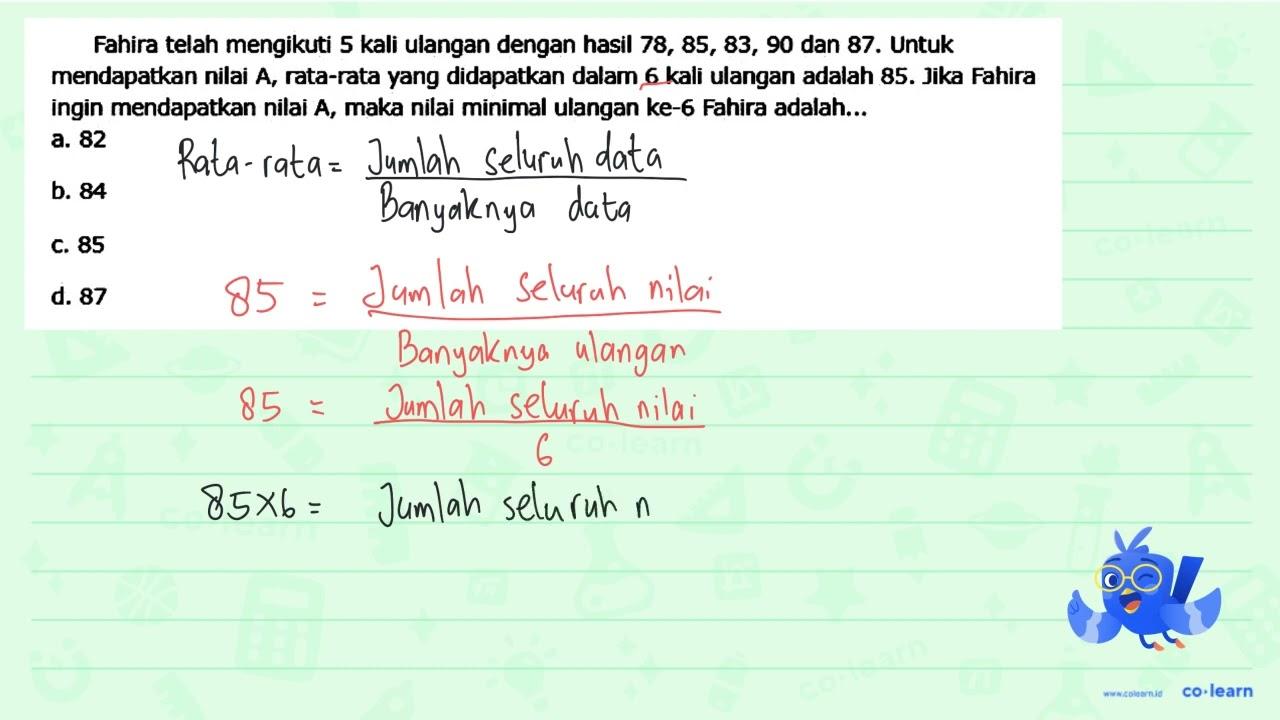 Fahira telah mengikuti 5 kali ulangan dengan hasil 78, 85, 83, 90 dan 87. Untuk
mendapatkan nilai A, rata-rata yang didapatkan dalam 6 kali ulangan adalah 85. Jika Fahira
ingin mendapatkan nilai A, maka nilai minimal ulangan ke-6 Fahira adalah...
a. 82
b. 84
c. 85
d. 87
Rata-rata = Jumlah seluruh data
Banyaknya data
85 = Jumlah seluruh nilai
Banyaknya ulangan
85 = Jumlah seluruh nilai
6
85×6 = Jumlah seluruh n
www.colearn.id co·learn
co·learn
co·learn
co·learn
co·learn